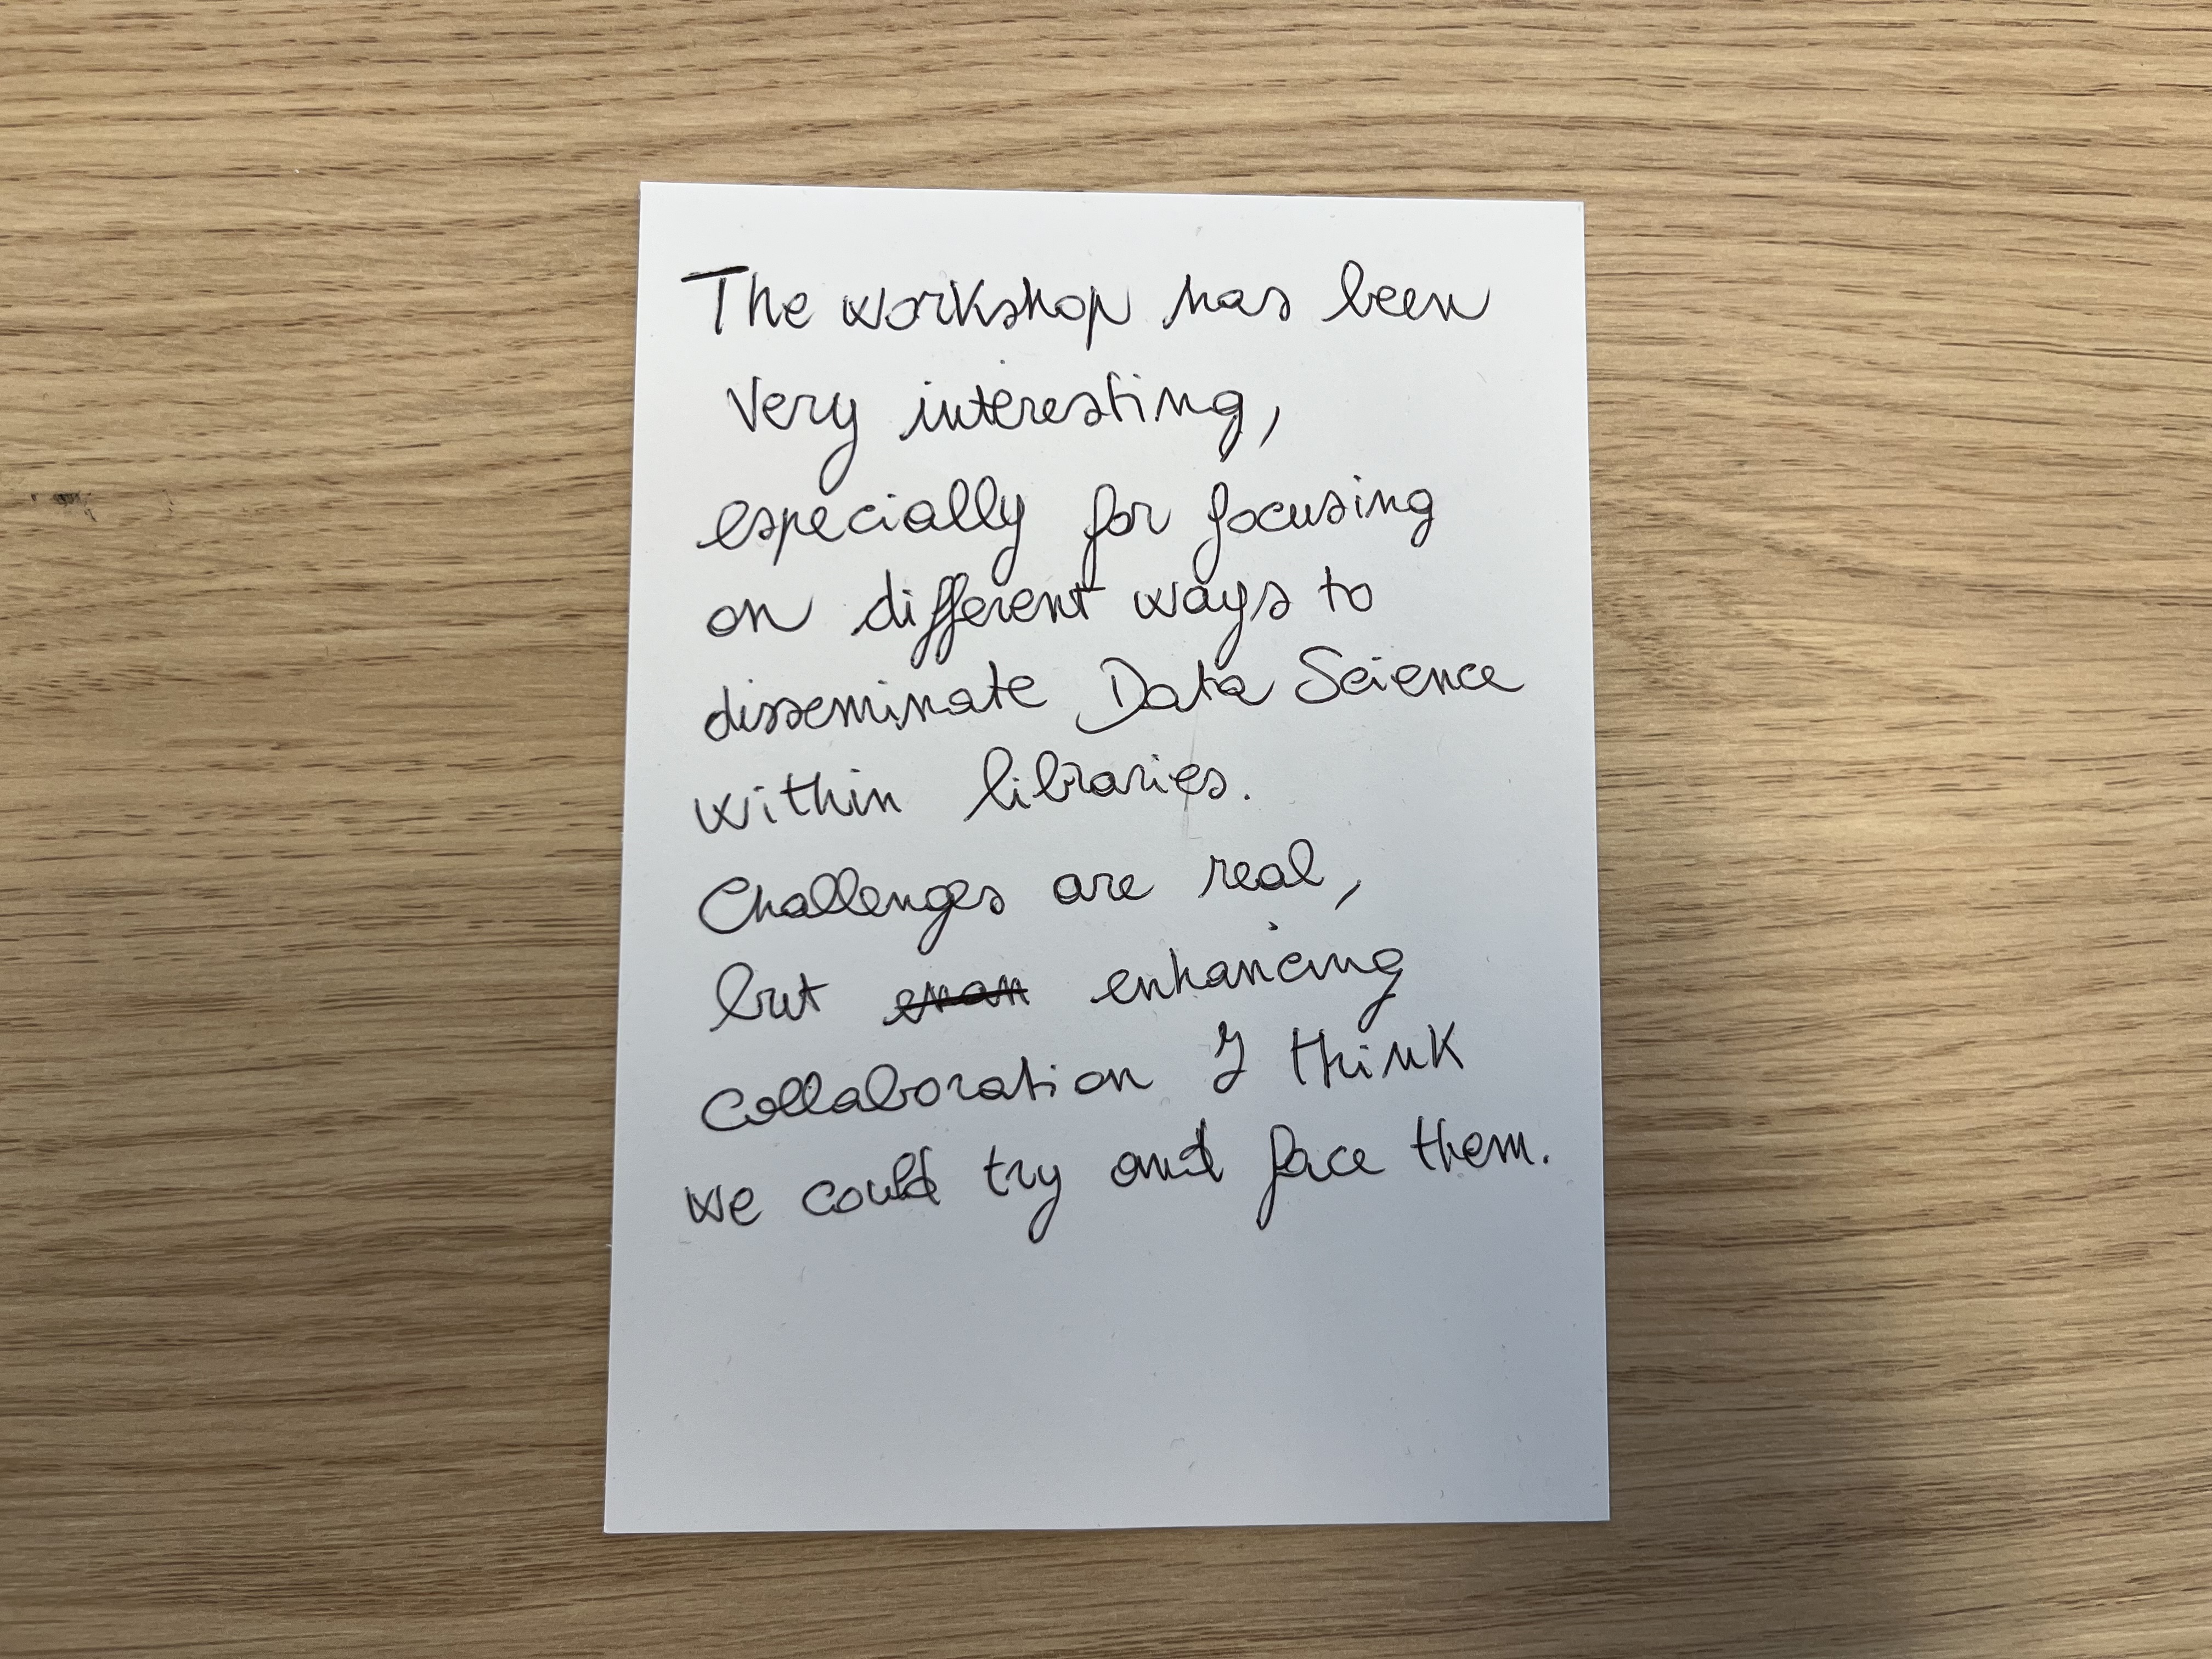 The workshop has been
very interesting,
especially for focusing
on different ways to
disseminate Data Science
within libraries.
Challenges are real,
but enhancing
collaboration I think
we could try and face them.